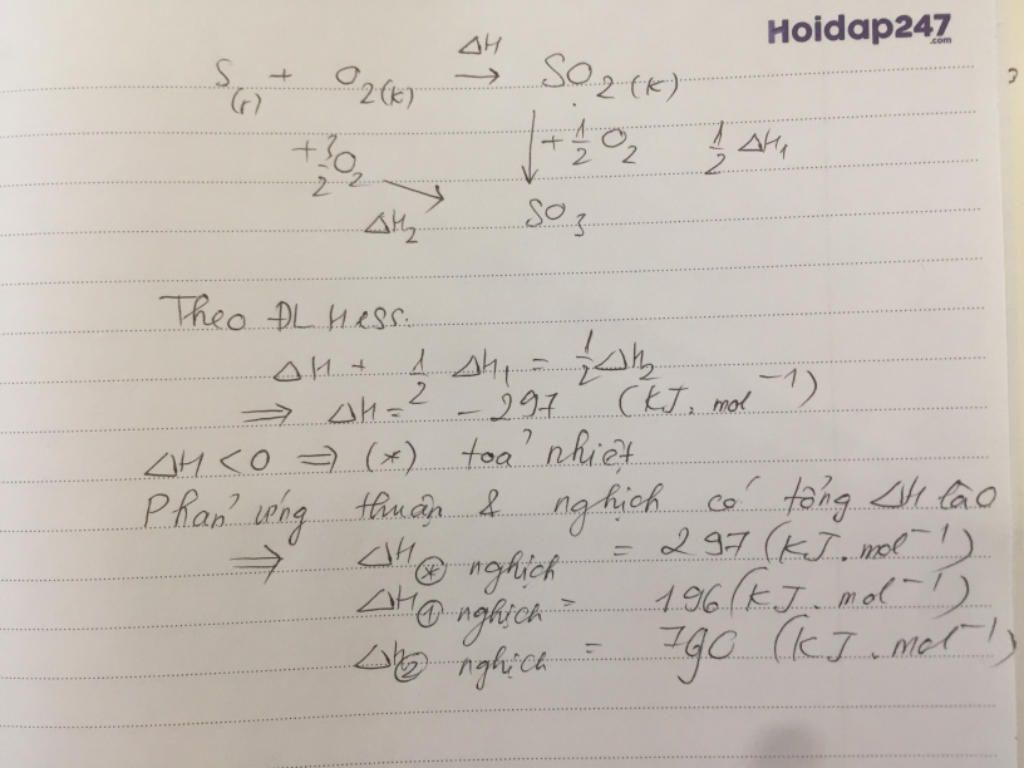 Hoidap247
.com
S(r) + O2(K) →ΔH SO2(K)
+ 3/2 O2 ↓ + 1/2 O2 1/2 ΔH1
→ ΔH2 SO3
Theo ĐL Hess:
ΔH + 1/2 ΔH1 = 1/2 ΔH2
⇒ ΔH = -297 (KJ. mol⁻¹)
ΔH < 0 ⇒ (*) toả nhiệt
Phản ứng thuận & nghịch có tổng ΔH là 0
⇒ ΔH(*) nghịch = 297 (KJ. mol⁻¹)
ΔH① nghịch = 196 (KJ. mol⁻¹)
ΔH② nghịch = 790 (KJ. mol⁻¹)